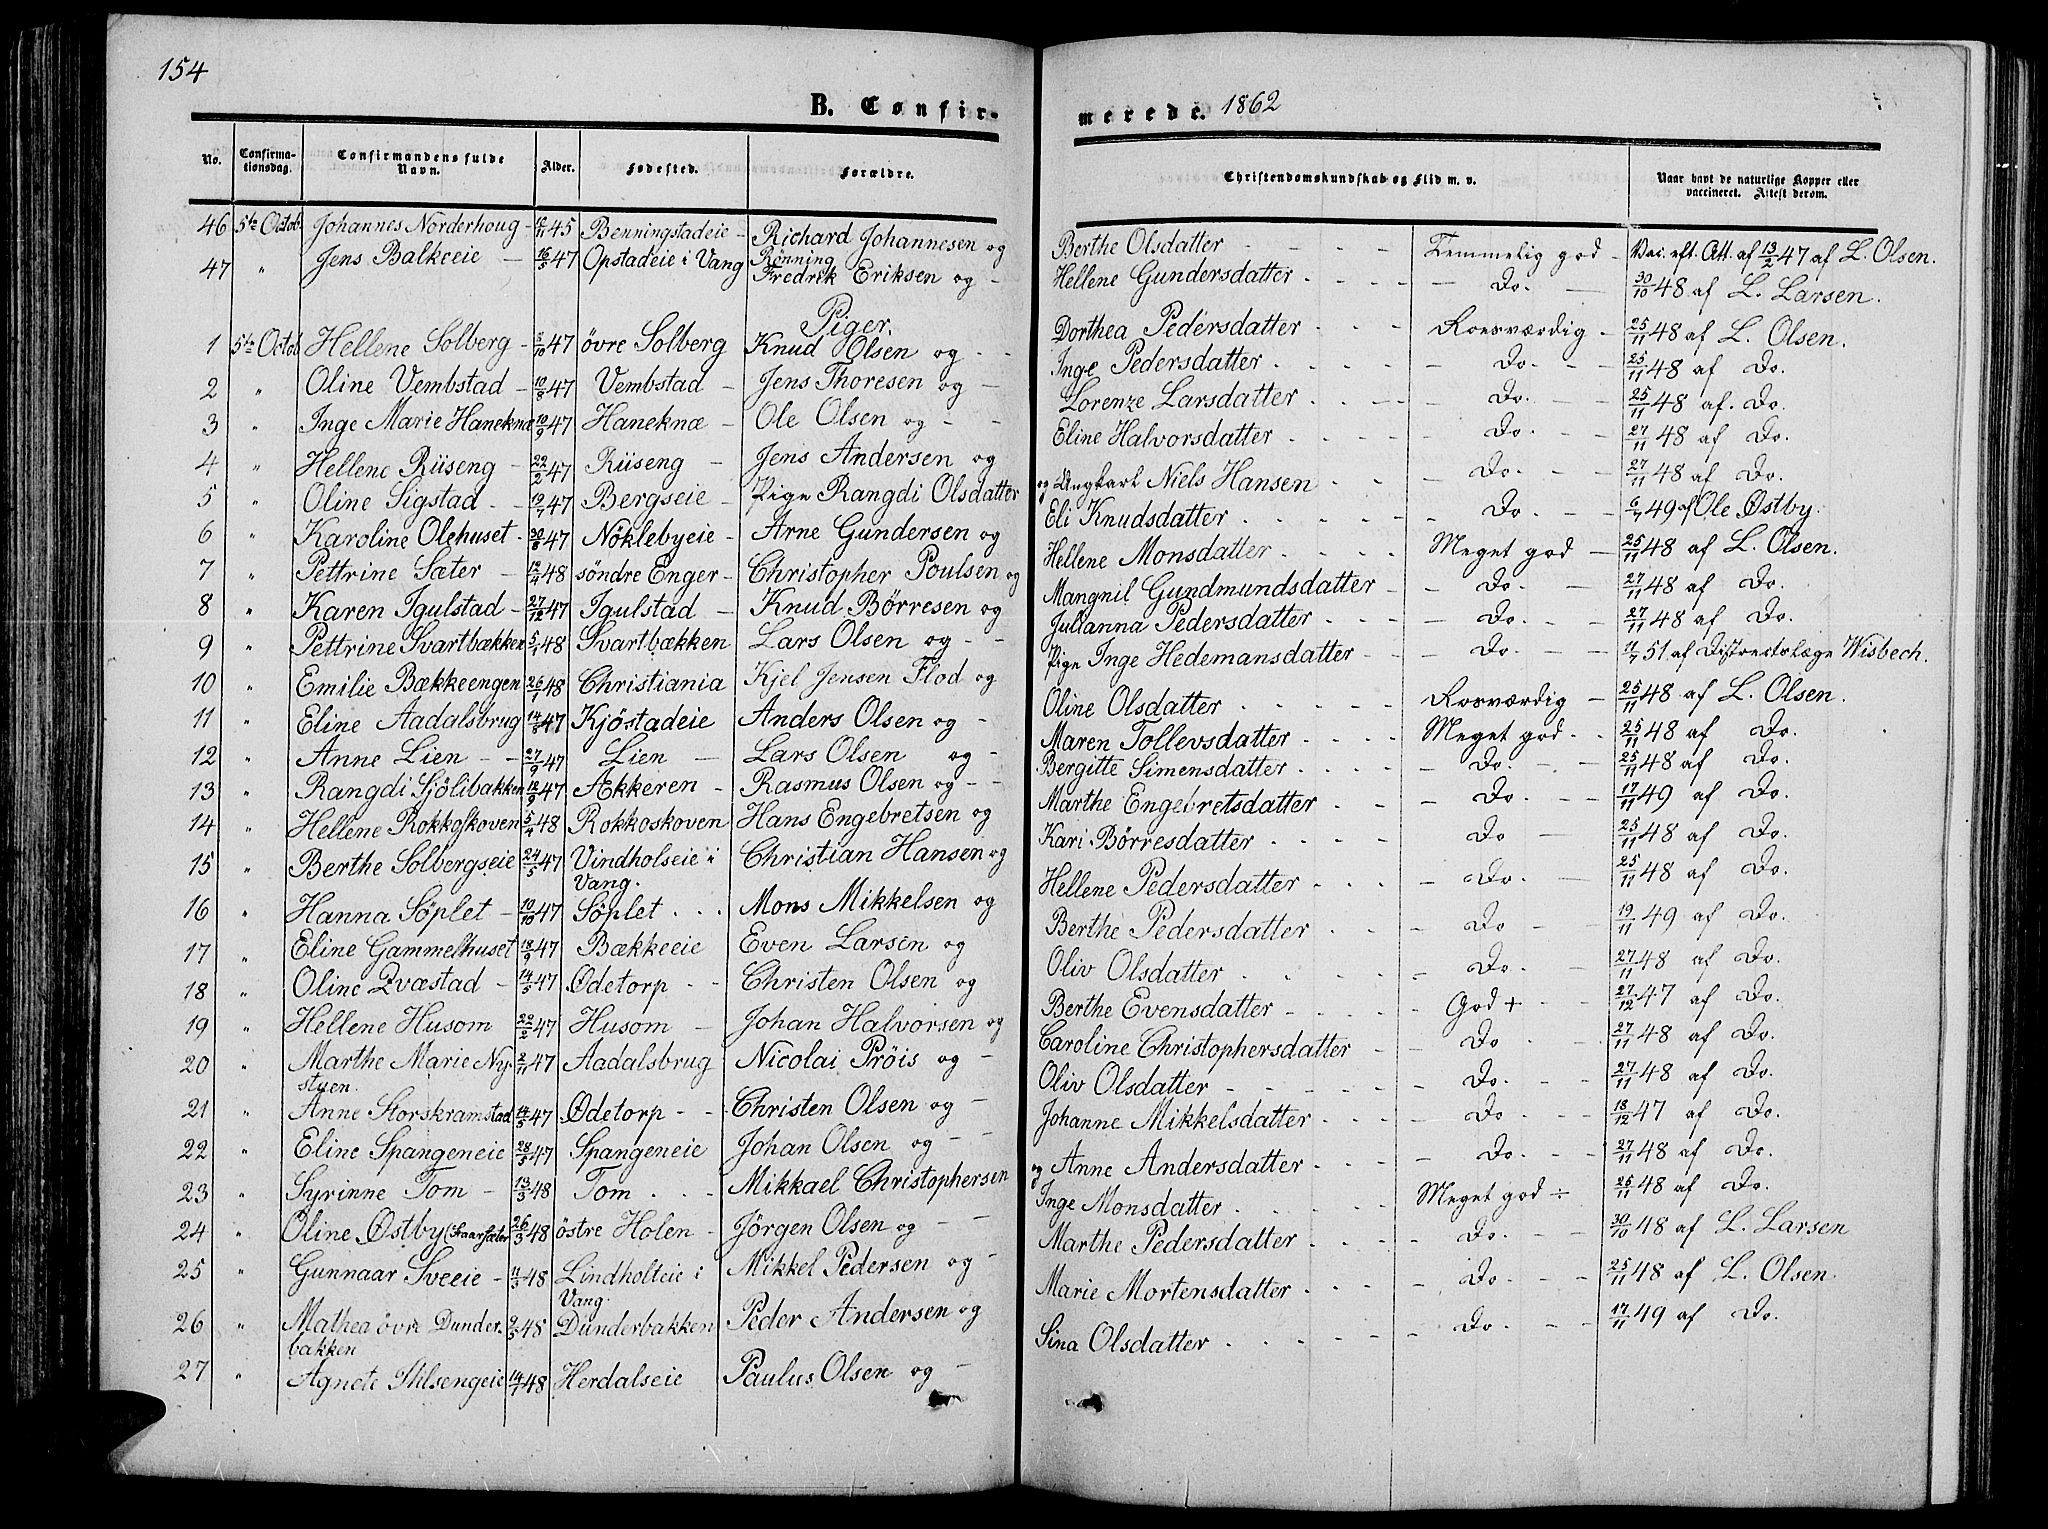 154
B. Confir-
merede. 1862
No. Confirma-tionsdag. Confirmandens fulde Navn. Alder. Fødested. Forældre. Christendomskundskab og Flid m. v. Naar havt de naturlige Kopper eller vaccineret. Attest derom.
46 5te Octob. Johannes Norderhoug - 45 Benningstadeie - Richard Johannesen og Berthe Olsdatter - - - - Temmelig god - Vac. eft. Att. af 13/2 47 af L. Olsen.
47 " Jens Balkeeie - 16/5 47 Opstadeie i Vang Rønning Fredrik Eriksen og - Hellene Gundersdatter - - - - Do. - 30/10 48 af L. Larsen.
Piger.
1 5te Octob. Hellene Solberg - 5/10 47 övre Solberg Knud Olsen og - - Dorthea Pedersdatter - - - Roesværdig - 25/11 48 af L. Olsen.
2 " Oline Vembstad - 10/8 47 Vembstad - Jens Thoresen og - Inge Pedersdatter - - - - Do. - - 25/11 48 af Do.
3 " Inge Marie Haneknæ 10/9 47 Haneknæ - Ole Olsen og - - Lorenze Larsdatter - - - - Do. - - 25/11 48 af. Do.
4 " Hellene Rüseng - 22/2 47 Rüseng - Jens Andersen og Eline Halvorsdatter - - - - Do. - - 27/11 48 af Do.
5 " Oline Sigstad - - 47 Bergseie - Pige Rangdi Olsdatter og Ungkarl Niels Hansen - - - Do. - - 27/11 48 af Do.
6 " Karoline Olehuset - 30/8 47 Nöklebyeie - Arne Gundersen og Eli Knudsdatter - - - - - Do. - - 6/7 49 af Ole Østby.
7 " Pettrine Sæter - 12/4 48 söndre Enger - Christopher Poulsen og Hellene Monsdatter - - - - Meget god - 25/11 48 af L. Olsen.
8 " Karen Igulstad - 27/12 47 Igulstad - Knud Börresen og Mangnil Gundmundsdatter - - Do. - 27/11 48 af Do.
9 " Pettrine Svartbækken 5/1 48 Svartbækken Lars Olsen og - - Julianna Pedersdatter - - - - Do. - - 27/11 48 af Do.
10 " Emilie Bækkeengen 26/1 48 Christiania Kjel Jensen Flod og Pige Inge Hedemansdatter - - - Do - - 51 af Distrectslæge Wisbech.
11 " Eline Aadalsbrug 14/8 47 Kjöstadeie Anders Olsen og - Oline Olsdatter - - - - - Rosværdig - 25/11 48 af L. Olsen.
12 " Anne Lien - - 27/9 47 Lien - Lars Olsen og - Maren Tollevsdatter - - - - Meget god - - 25/11 48 af Do.
13 " Rangdi Sjölibakken 12/9 47 Ækkeren - Rasmus Olsen og - - Bergitte Simensdatter - - - - Do. - - 25/11 48 af Do.
14 " Hellene Rokkoskoven 5/4 48 Rokkoskoven Hans Engebretsen og Marthe Engebretsdatter - - - Do. - - 17/11 49 af Do.
15 " Berthe Solbergseie 24/5 47 Vindholseie i Vang. Christian Hansen og Kari Börresdatter - - - - Do - 25/11 48 af Do.
16 " Hanna Söplet - 10/10 47 Söplet - - - Mons Mikkelsen og Hellene Pedersdatter - - - - Do. - 25/11 48 af Do.
17 " Eline Gammelhuset 18/9 47 Bækkeeie Even Larsen og Berthe Pedersdatter - - - Do - - 19/11 49 af Do.
18 " Oline Qvæstad - 14/5 47 Ødetorp - - Christen Olsen og Oliv Olsdatter - - - - - Do. - 27/11 48 af Do.
19 " Hellene Husom 22/2 47 Husom - Johan Halvorsen og Berthe Evensdatter - - - - - God + - - 27/12 47 af Do.
20 " Marthe Marie Nystuen. 2/11 47 Aadalsbrug Nicolai Pröis og - Caroline Christophersdatter - - Do - - 27/11 48 af Do.
21 " Anne Storskramstad 14/5 47 Ødetorp - - Christen Olsen og - Oliv Olsdatter - - - - - - Do. - - 27/11 48 af Do.
22 " Eline Spangeneie 28/5 47 Spangeneie Johan Olsen og - - Johanne Mikkelsdatter - - - - Do - - - 18/12 47 af Do.
23 " Syrinne Tom - 13/3 48 Tom - - - Mikkael Christophersen og Anne Andersdatter - - - - Do. - - 27/11 48 af Do.
24 " Oline Østby (Skaarsæter 26/3 48 östre Holen - Jörgen Olsen og - - Inge Monsdatter - - - - - Meget god ÷ 25/11 48 af Do.
25 " Gunnaar Sveeie - 11/3 48 Lindholteie i Vang. Mikkel Pedersen og - Marthe Pedersdatter - - - - Do. - - 30/10 48 af L. Larsen
26 " Mathea övre Dunderbakken 2/5 48 Dunderbakken Peder Andersen og Marie Mortensdatter - - - - Do - - 25/11 48 af L. Olsen.
27 " Agnete Stilsengeie 14/1 48 Herdalseie Paulus Olsen og - Sina Olsdatter - - - - - Do. - - 17/11 49 af Do.